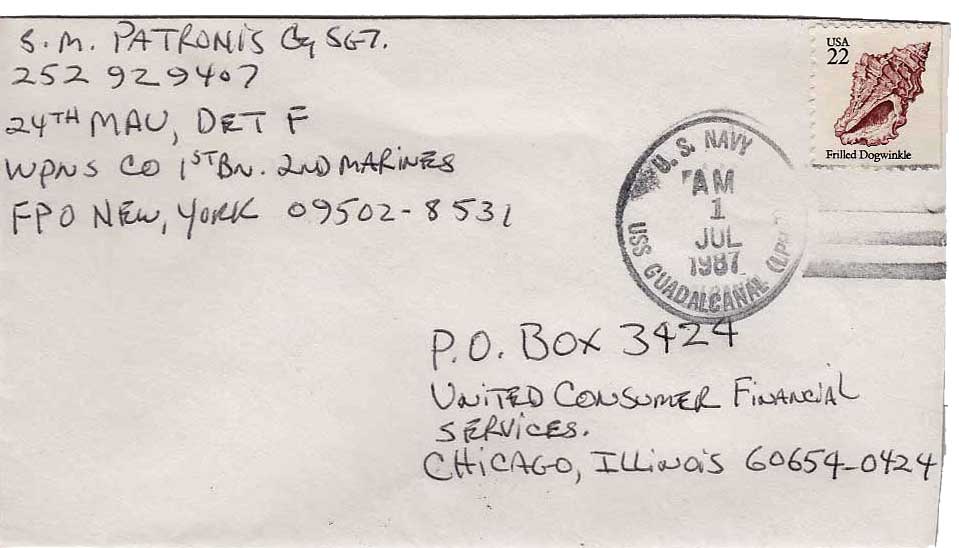 S. M. PATRONIS Gy SGT.
252 92 9407
24TH MAU, DET F
WPNS CO 1ST BN. 2ND MARINES
FPO NEW, YORK 09502-8531
USA
22
Frilled Dogwinkle
U.S. NAVY
AM
1
JUL
1987
USS GUADALCANAL
P.O. BOX 3424
UNITED CONSUMER FINANCIAL
SERVICES.
CHICAGO, ILLINOIS 60654-0424